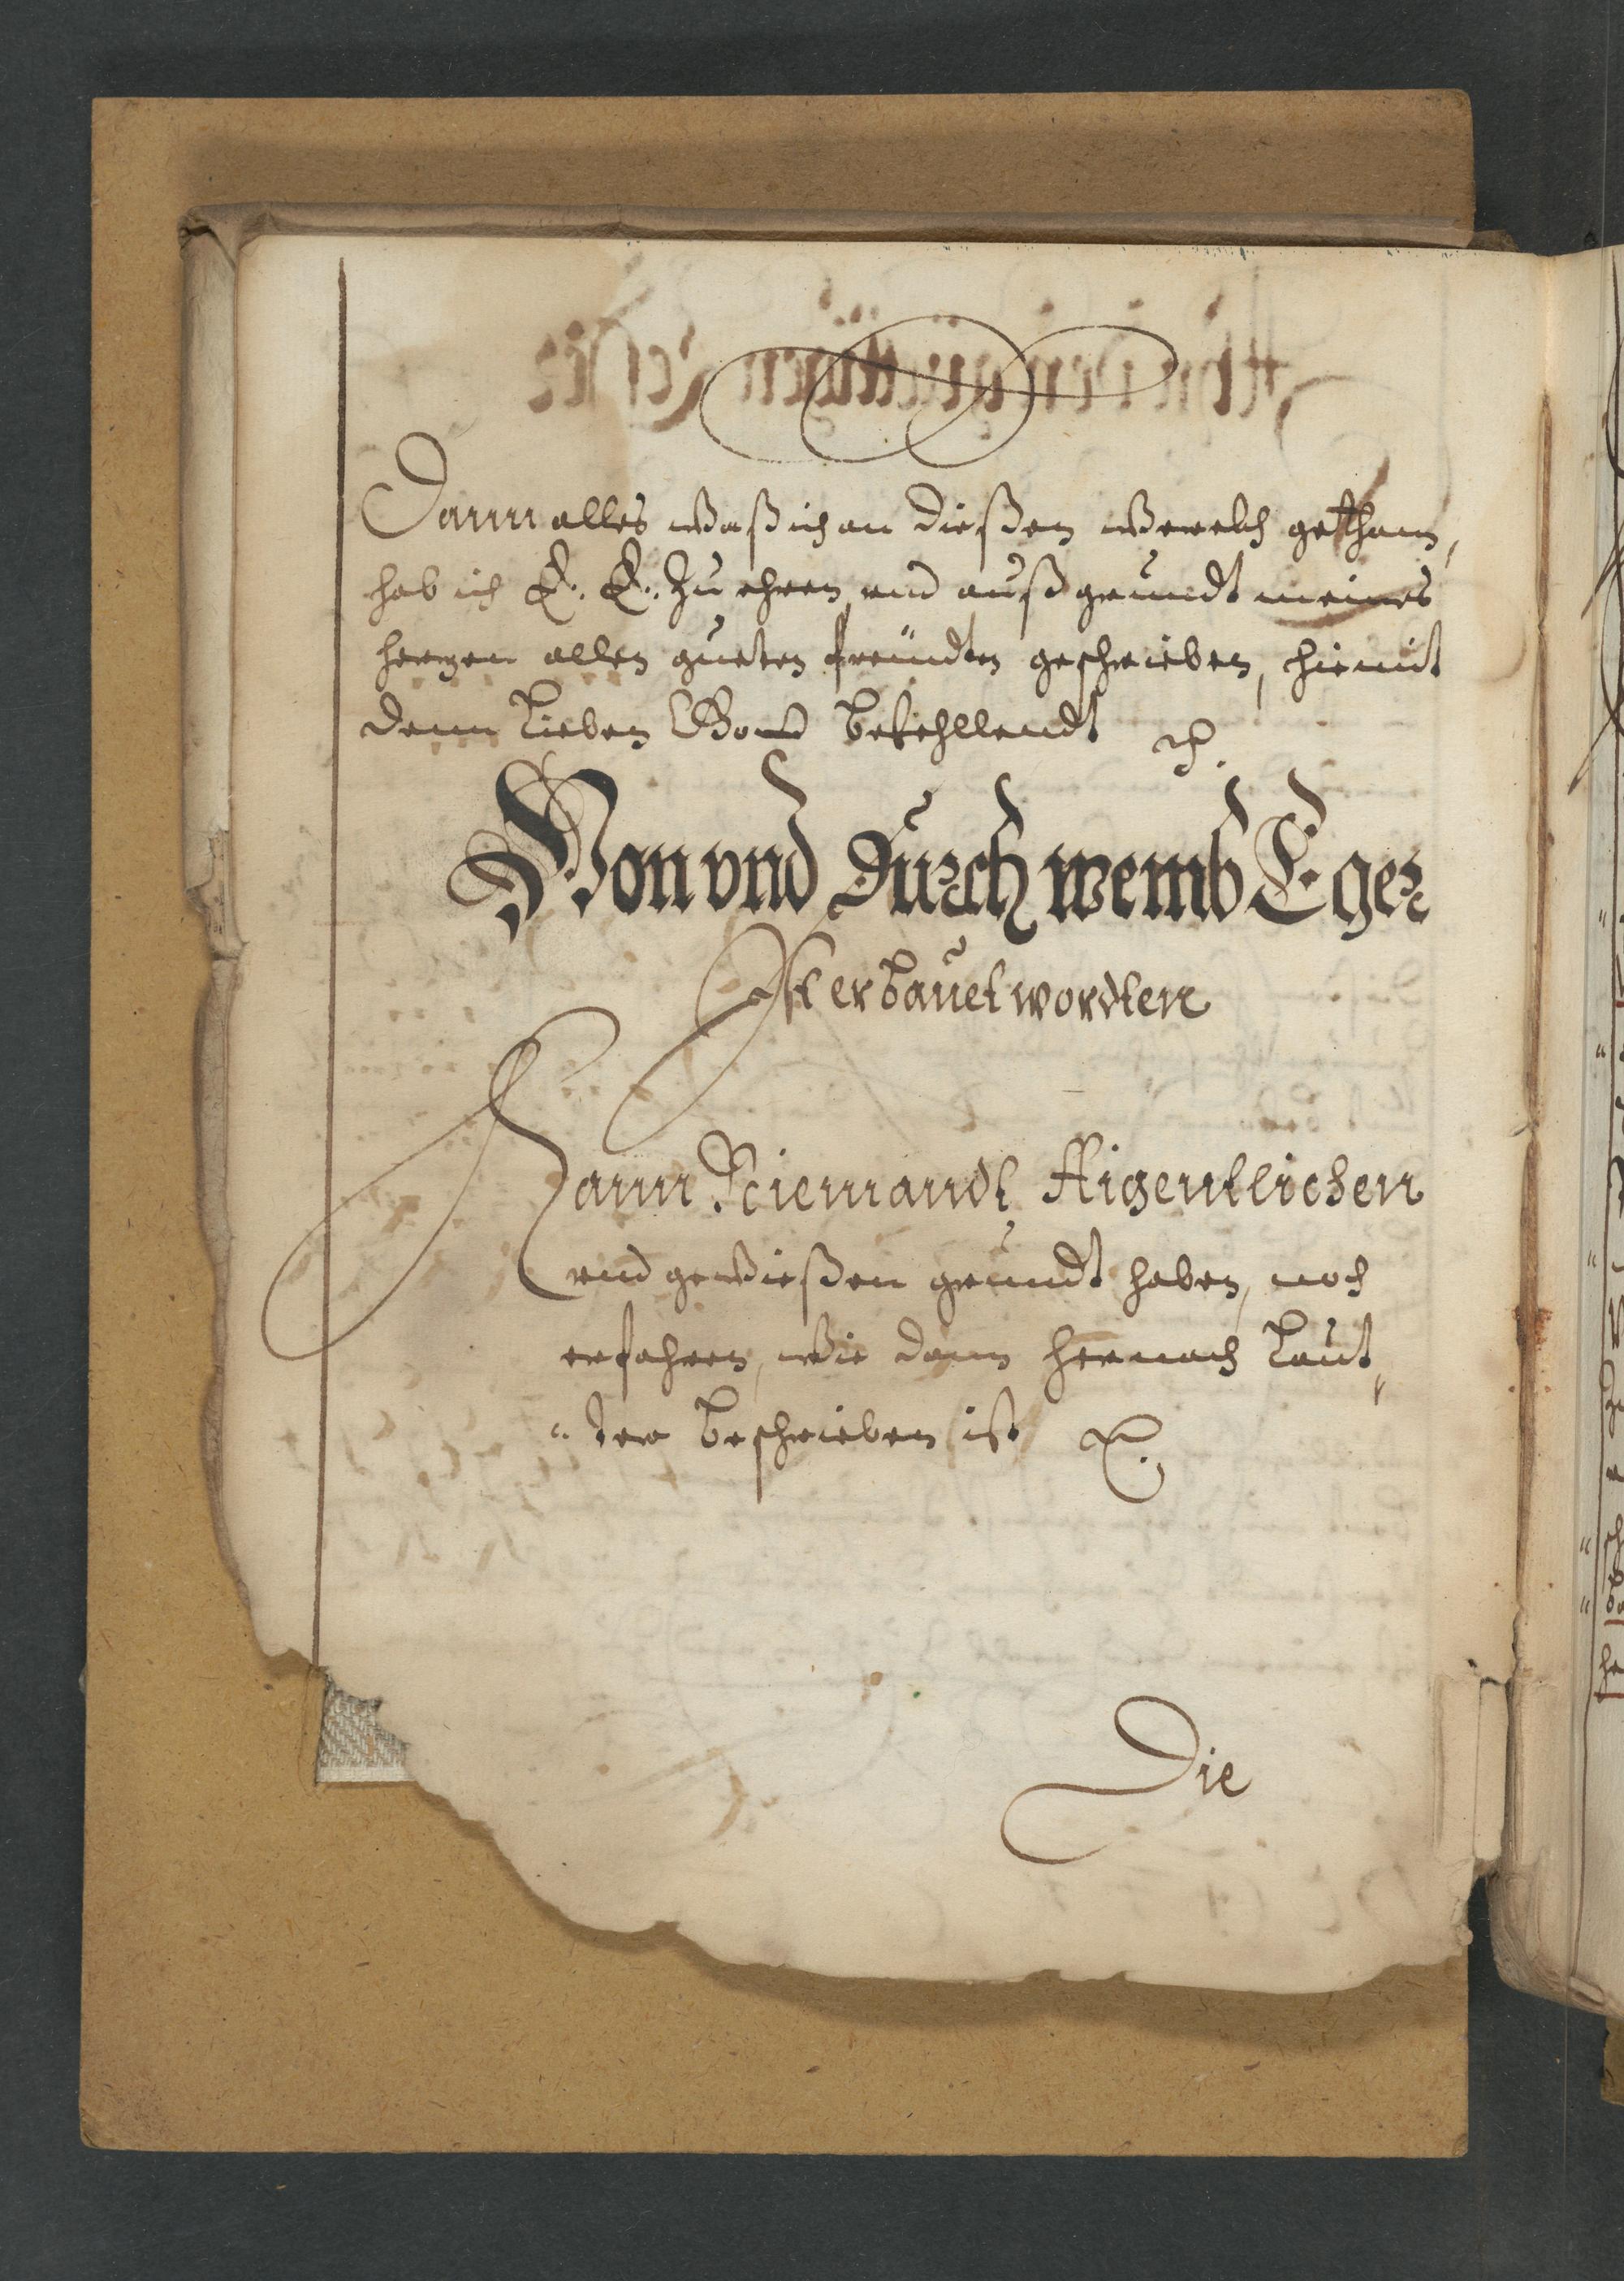 Dann alles waß ich an dießen Werckh gethan,
hab ich E. E. zu ehren, und auß grundt meines
herzen allen gueten freündten geschrieben, hiemit
dem Lieben Gott befehllendt ꝛc.
Von vnd Durch wemb Eger
Ist erbauet wordten
Kann Niemandt Aigentlichen
und gewießen grundt haben, noch
erfahren, wie dann hernach Laut„
„ter beschrieben ist ꝛc.
Die